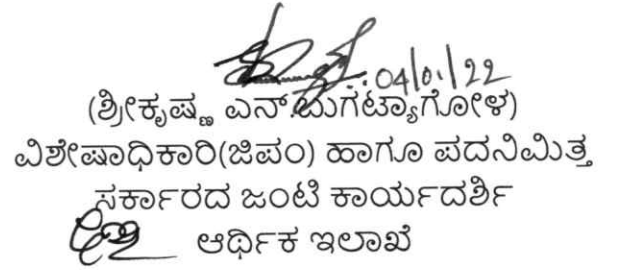 04/01/22
(ಶ್ರೀಕೃಷ್ಣ ಎನ್.ಬುಗಟ್ಯಾಗೋಳ)
ವಿಶೇಷಾಧಿಕಾರಿ(ಜಿಪಂ) ಹಾಗೂ ಪದನಿಮಿತ್ತ
ಸರ್ಕಾರದ ಜಂಟಿ ಕಾರ್ಯದರ್ಶಿ
ಆರ್ಥಿಕ ಇಲಾಖೆ